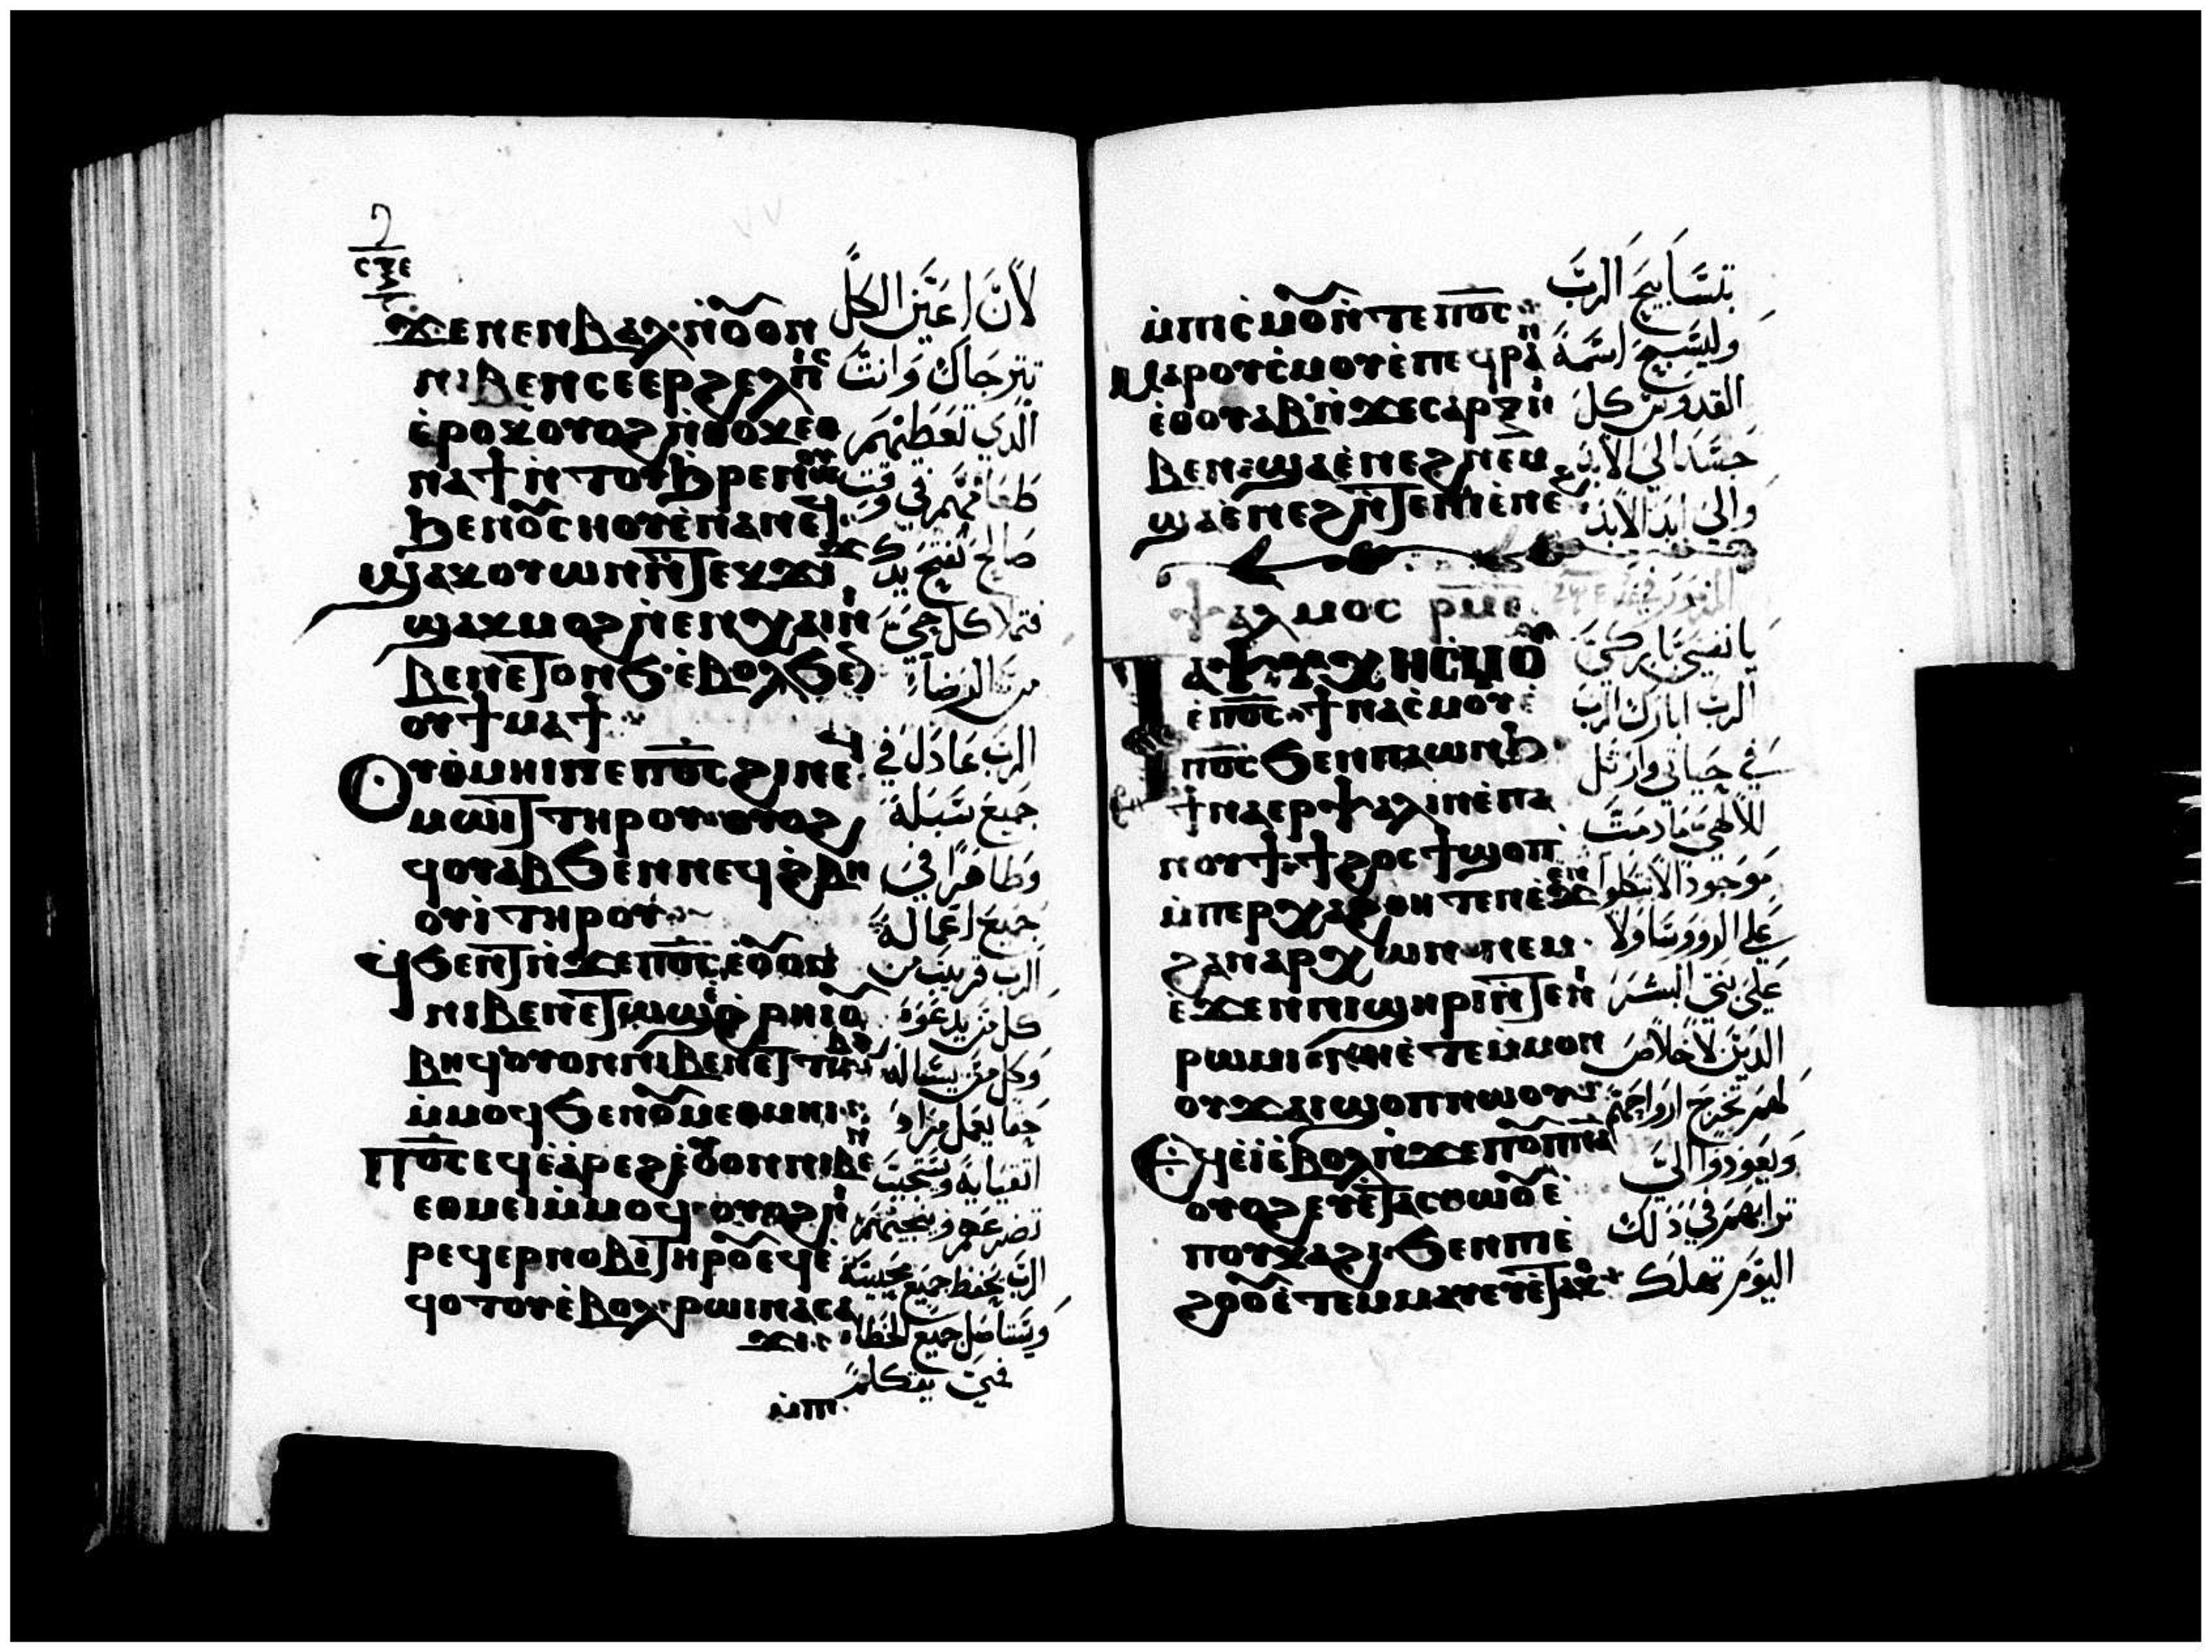 ϫⲉ ⲛⲉⲛⲃⲁⲗ ⲛ̀ⲟⲩⲟⲛ
ⲛⲓⲃⲉⲛ ⲥⲉⲉⲣϩⲉⲗⲡⲓⲥ
ⲉ̀ⲣⲟⲕ ⲟⲩⲟϩ ⲛ̀ⲑⲟⲕ ⲉⲑ
ⲛⲁϯ ⲛ̀ⲧⲟⲩϧⲣⲉ ⲛⲱⲟⲩ
ϧⲉⲛ ⲟⲩⲥⲏⲟⲩ ⲉ̀ⲛⲁⲛⲉϥ
ϣⲁⲕⲟⲩⲱⲛ ⲛ̀ⲧⲉⲕϫⲓϫ
ϣⲁⲕⲙⲟϩ ⲛ̀ⲉⲛⲭⲁⲓ ⲛⲓ
ⲃⲉⲛ ⲉⲧⲟⲛϧ ⲉ̀ⲃⲟⲗϧⲉⲛ
ⲟⲩϯⲙⲁϯ
Ⲟⲩⲑ̀ⲙⲏⲓ ⲡⲉ ⲡ̅ⲟ̅ⲥ̅ ϩⲓ ⲛⲉϥ
ⲙⲱⲓⲧ ⲧⲏⲣⲟⲩ ⲟⲩⲟϩ
ϥⲟⲩⲁⲃ ϧⲉⲛ ⲛⲉϥϩ̀ⲃⲏ
ⲟⲩⲓ̀ ⲧⲏⲣⲟⲩ
ϥϧⲉⲛⲧ ⲛ̀ϫⲉ ⲡ̅ⲟ̅ⲥ̅ ⲉ̀ⲟⲩⲟⲛ
ⲛⲓⲃⲉⲛ ⲉⲧⲱϣ ⲉ̀ϩ̀ⲣⲏⲓ ⲟⲩ
ⲃⲏϥ ⲟⲩⲟⲛ ⲛⲓⲃⲉⲛ ⲉⲧⲧⲱⲃϩ
ⲙ̀ⲙⲟϥ ϧⲉⲛ ⲟⲩⲙⲉⲑⲙⲏⲓ
Ⲡ̅ⲟ̅ⲥ̅ ⲉϥⲉ̀ⲁ̀ⲣⲉϩ ⲉ̀ⲟⲩⲟⲛ ⲛⲓⲃⲉⲛ
ⲉⲑⲙⲉⲓ ⲙ̀ⲙⲟϥ ⲟⲩⲟϩ ⲛⲓ
ⲣⲉϥⲉⲣⲛⲟⲃⲓ ⲧⲏⲣⲟⲩ ⲉϥⲉ̀
ϥⲟⲧⲟⲩ ⲉ̀ⲃⲟⲗ ⲣⲱⲓ ⲛⲁⲥⲁ
ϫⲓ
ⲙ̀ⲡⲓ
لأن اعين الكل
تترجاك وانت
الذي تعطيهم
طعامهم في وقت
صالح تفتح يدك
فتملا كل حي
من الرضا
الرب عادل في
جميع سبله
وطاهرا في
جميع اعماله
الرب قريب من
كل من يدعوه
وكل من يساله
حقا يعمل مراد
اتقيايه ويستجيب
تضرعهم وينجيهم
الرب يحفظ جميع محبيه
ويستاصل جميع الخطاه
في يتكلم
ⲙ̀ⲡⲓⲥ̀ⲙⲟⲩ ⲛ̀ⲧⲉ ⲡ̅ⲟ̅ⲥ̅
Ⲙⲁⲣⲟⲩⲥ̀ⲙⲟⲩ ⲉ̀ⲡⲉϥⲣⲁⲛ
ⲉ̀ⲑⲟⲩⲁⲃ ⲛ̀ϫⲉ ⲥⲁⲣⲝ ⲛⲓ
ⲃⲉⲛ ϣⲁ ⲉ̀ⲛⲉϩ ⲛⲉⲙ
ϣⲁ ⲉ̀ⲛⲉϩ ⲛ̀ⲧⲉ ⲡⲓⲉ̀ⲛⲉϩ
ⲯⲁⲗⲙⲟⲥ ⲣ̅ⲙ̅ⲉ̅
Ⲧⲁⲯⲩⲭⲏ ⲥ̀ⲙⲟⲩ
ⲉ̀ⲡ̅ⲟ̅ⲥ̅ ϯⲛⲁⲥ̀ⲙⲟⲩ ⲉ̀
ⲡ̅ⲟ̅ⲥ̅ ϧⲉⲛ ⲡⲁⲱⲛϧ
ϯⲛⲁⲉⲣⲯⲁⲗⲓⲛ ⲉ̀ⲡⲁ
ⲛⲟⲩϯ ϯϩⲟⲥ ϯϣⲟⲡ
ⲙ̀ⲡⲉⲣⲭⲁϩⲑⲏⲧⲉⲛ ⲉ̀ϫⲉⲛ
ϩⲁⲛⲁⲣⲭⲱⲛ ⲛⲉⲙ
ⲉ̀ϫⲉⲛ ⲛⲓϣⲏⲣⲓ ⲛ̀ⲧⲉ ⲛⲓ
ⲣⲱⲙⲓ ⲛⲏ ⲉ̀ⲧⲉ ⲙ̀ⲙⲟⲛ
ⲟⲩϫⲁⲓ ϣⲟⲡ ⲛⲱⲟⲩ
Ⲉϥⲉ̀ⲓ̀ ⲉ̀ⲃⲟⲗ ⲛ̀ϫⲉ ⲡⲟⲩⲡ̅ⲛ̅ⲁ̅
ⲟⲩⲟϩ ⲉⲩⲉ̀ⲧⲁⲥⲑⲱⲟⲩ ⲉ̀
ⲡⲟⲩⲕⲁϩⲓ ϧⲉⲛ ⲡⲓⲉ̀
ϩⲟⲟⲩ ⲉ̀ⲧⲉⲙⲙⲁⲩ ⲉⲩⲉ̀ⲧⲁⲕⲟ
بتسابيح الرب
وليسبح اسمه
القدوس كل
جسد الي الابد
والي ابد الابد
يا نفسي باركي
الرب ابارك الرب
في حياتي وارتل
لالهي ما دمت
موجودا لا تتكلوا
علي الرووسا ولا
علي بني البشر
الذين لا خلاص
لهم تخرج ارواحهم
ويعودوا الي
ترابهم في ذلك
اليوم تهلك